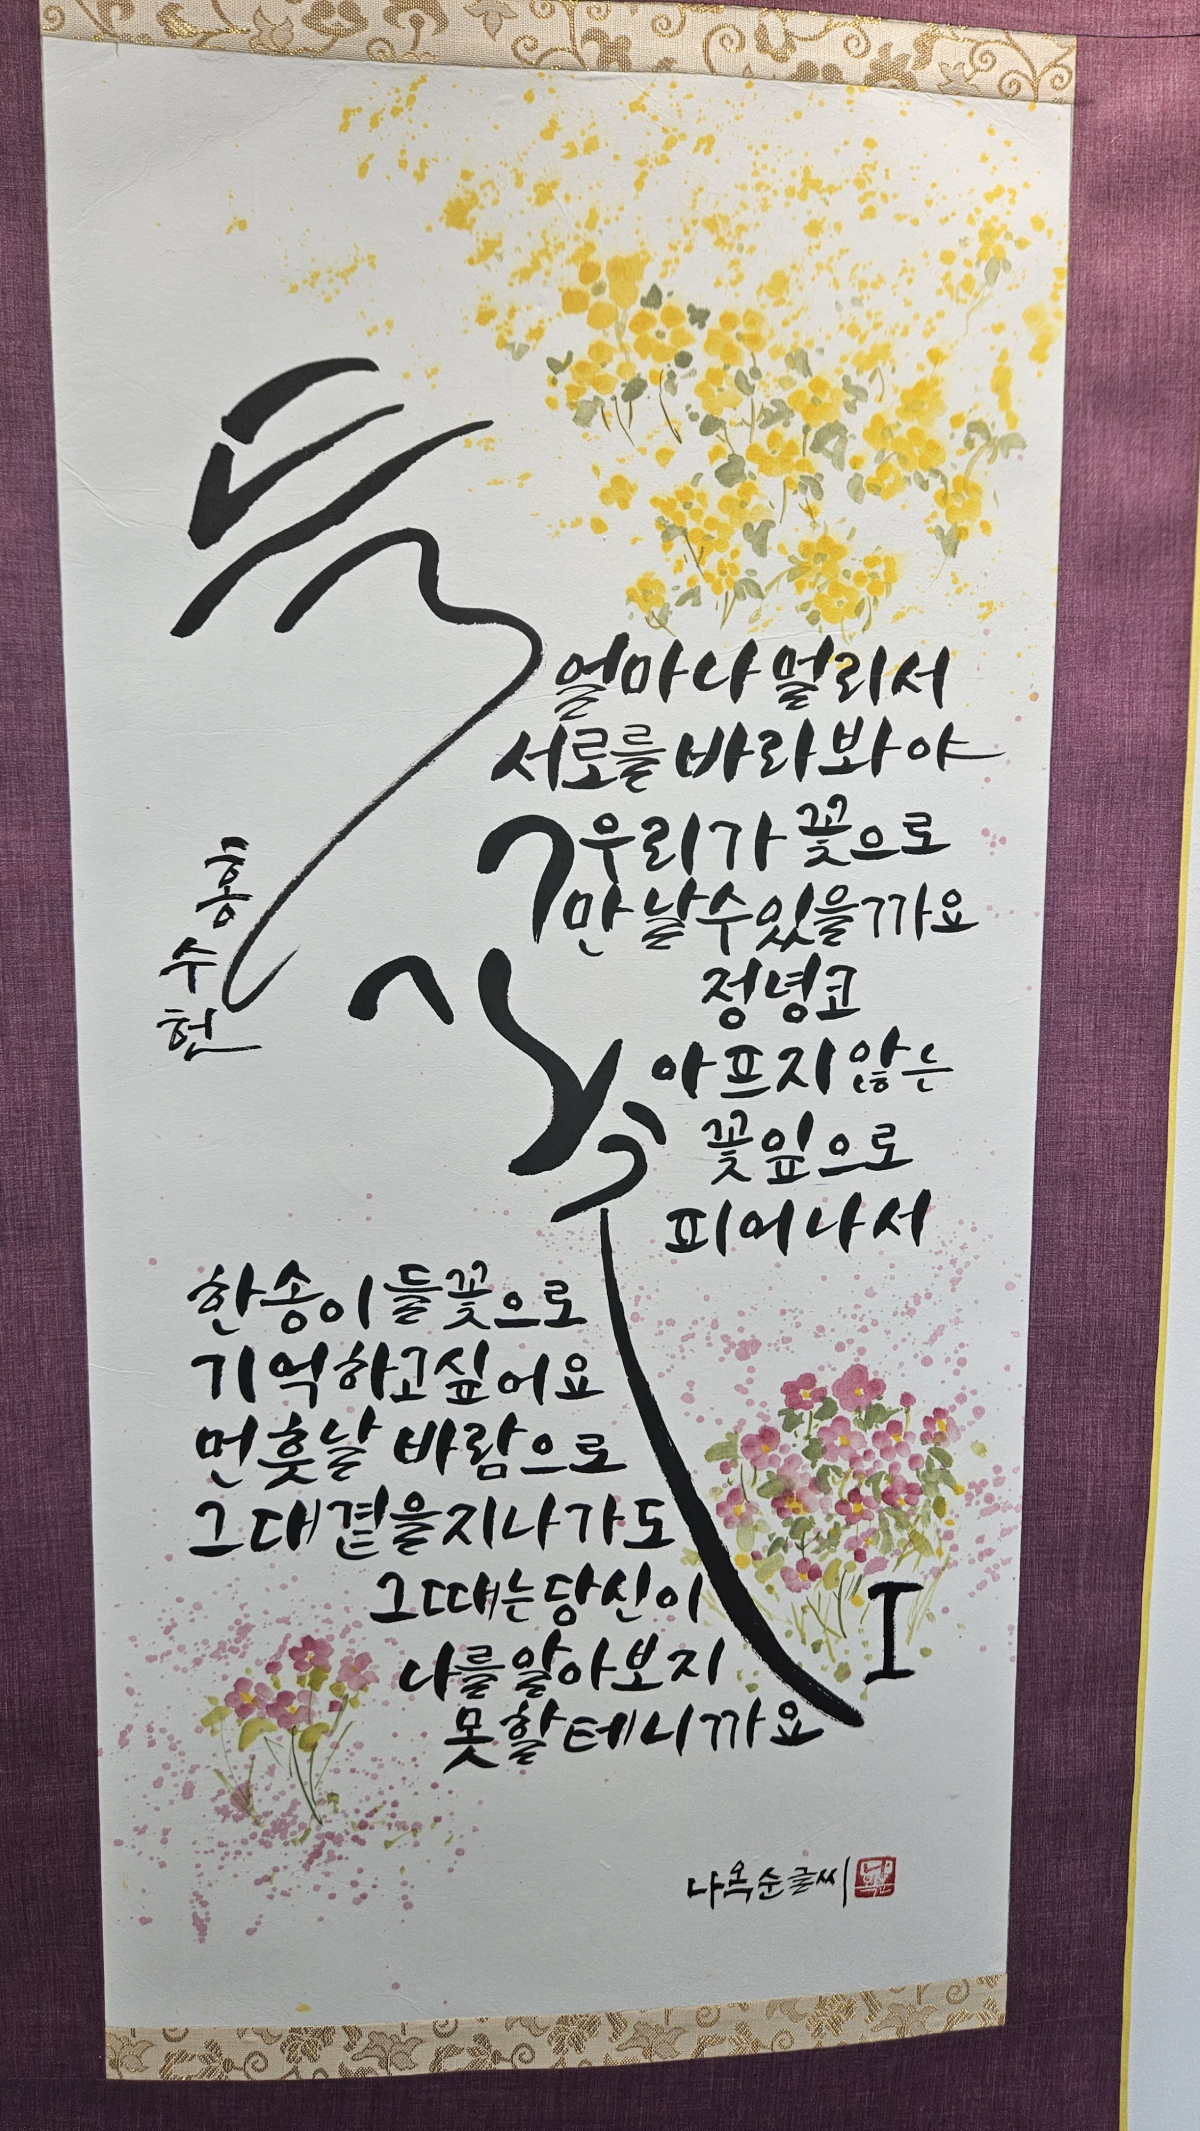 들꽃 I
홍수헌
얼마나 멀리서
서로를 바라봐야
우리가 꽃으로
만날 수 있을까요
정녕코
아프지 않은
꽃잎으로
피어나서
한송이 들꽃으로
기억하고 싶어요
먼 훗날 바람으로
그대 곁을 지나가도
그때는 당신이
나를 알아보지
못할테니까요
나옥순 글씨